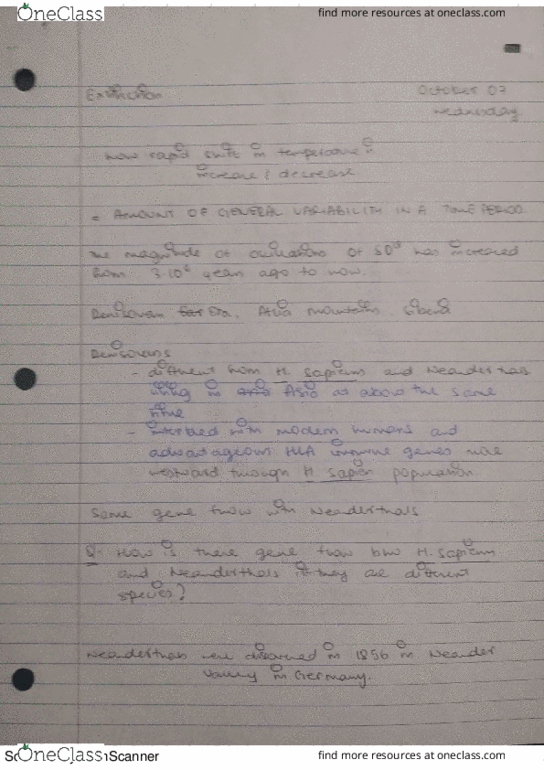 OneClass
find more resources at oneclass.com
Extinction
October 07
wednesday
how rapid shift in temperature is
increase & decrease
= AMOUNT OF GENERAL VARIABILITY IN A TIME PERIOD
The magnitude of oscillations of δO¹⁸ has increased
from 3·10⁶ years ago to now.
mountains, Siberia
Denisovans
- different from H. sapiens and Neanderthals
living in Asia at about the same
time
- interbred with modern humans and
advantageous HLA immune genes
westward through H. sapien population
Some gene flow with Neanderthals
Q- How is there gene flow btw H. sapiens
and Neanderthals if they are different
species?
Neanderthals were discovered in 1856 in Neander
Valley in Germany.
OneClass
Scanner
find more resources at oneclass.com